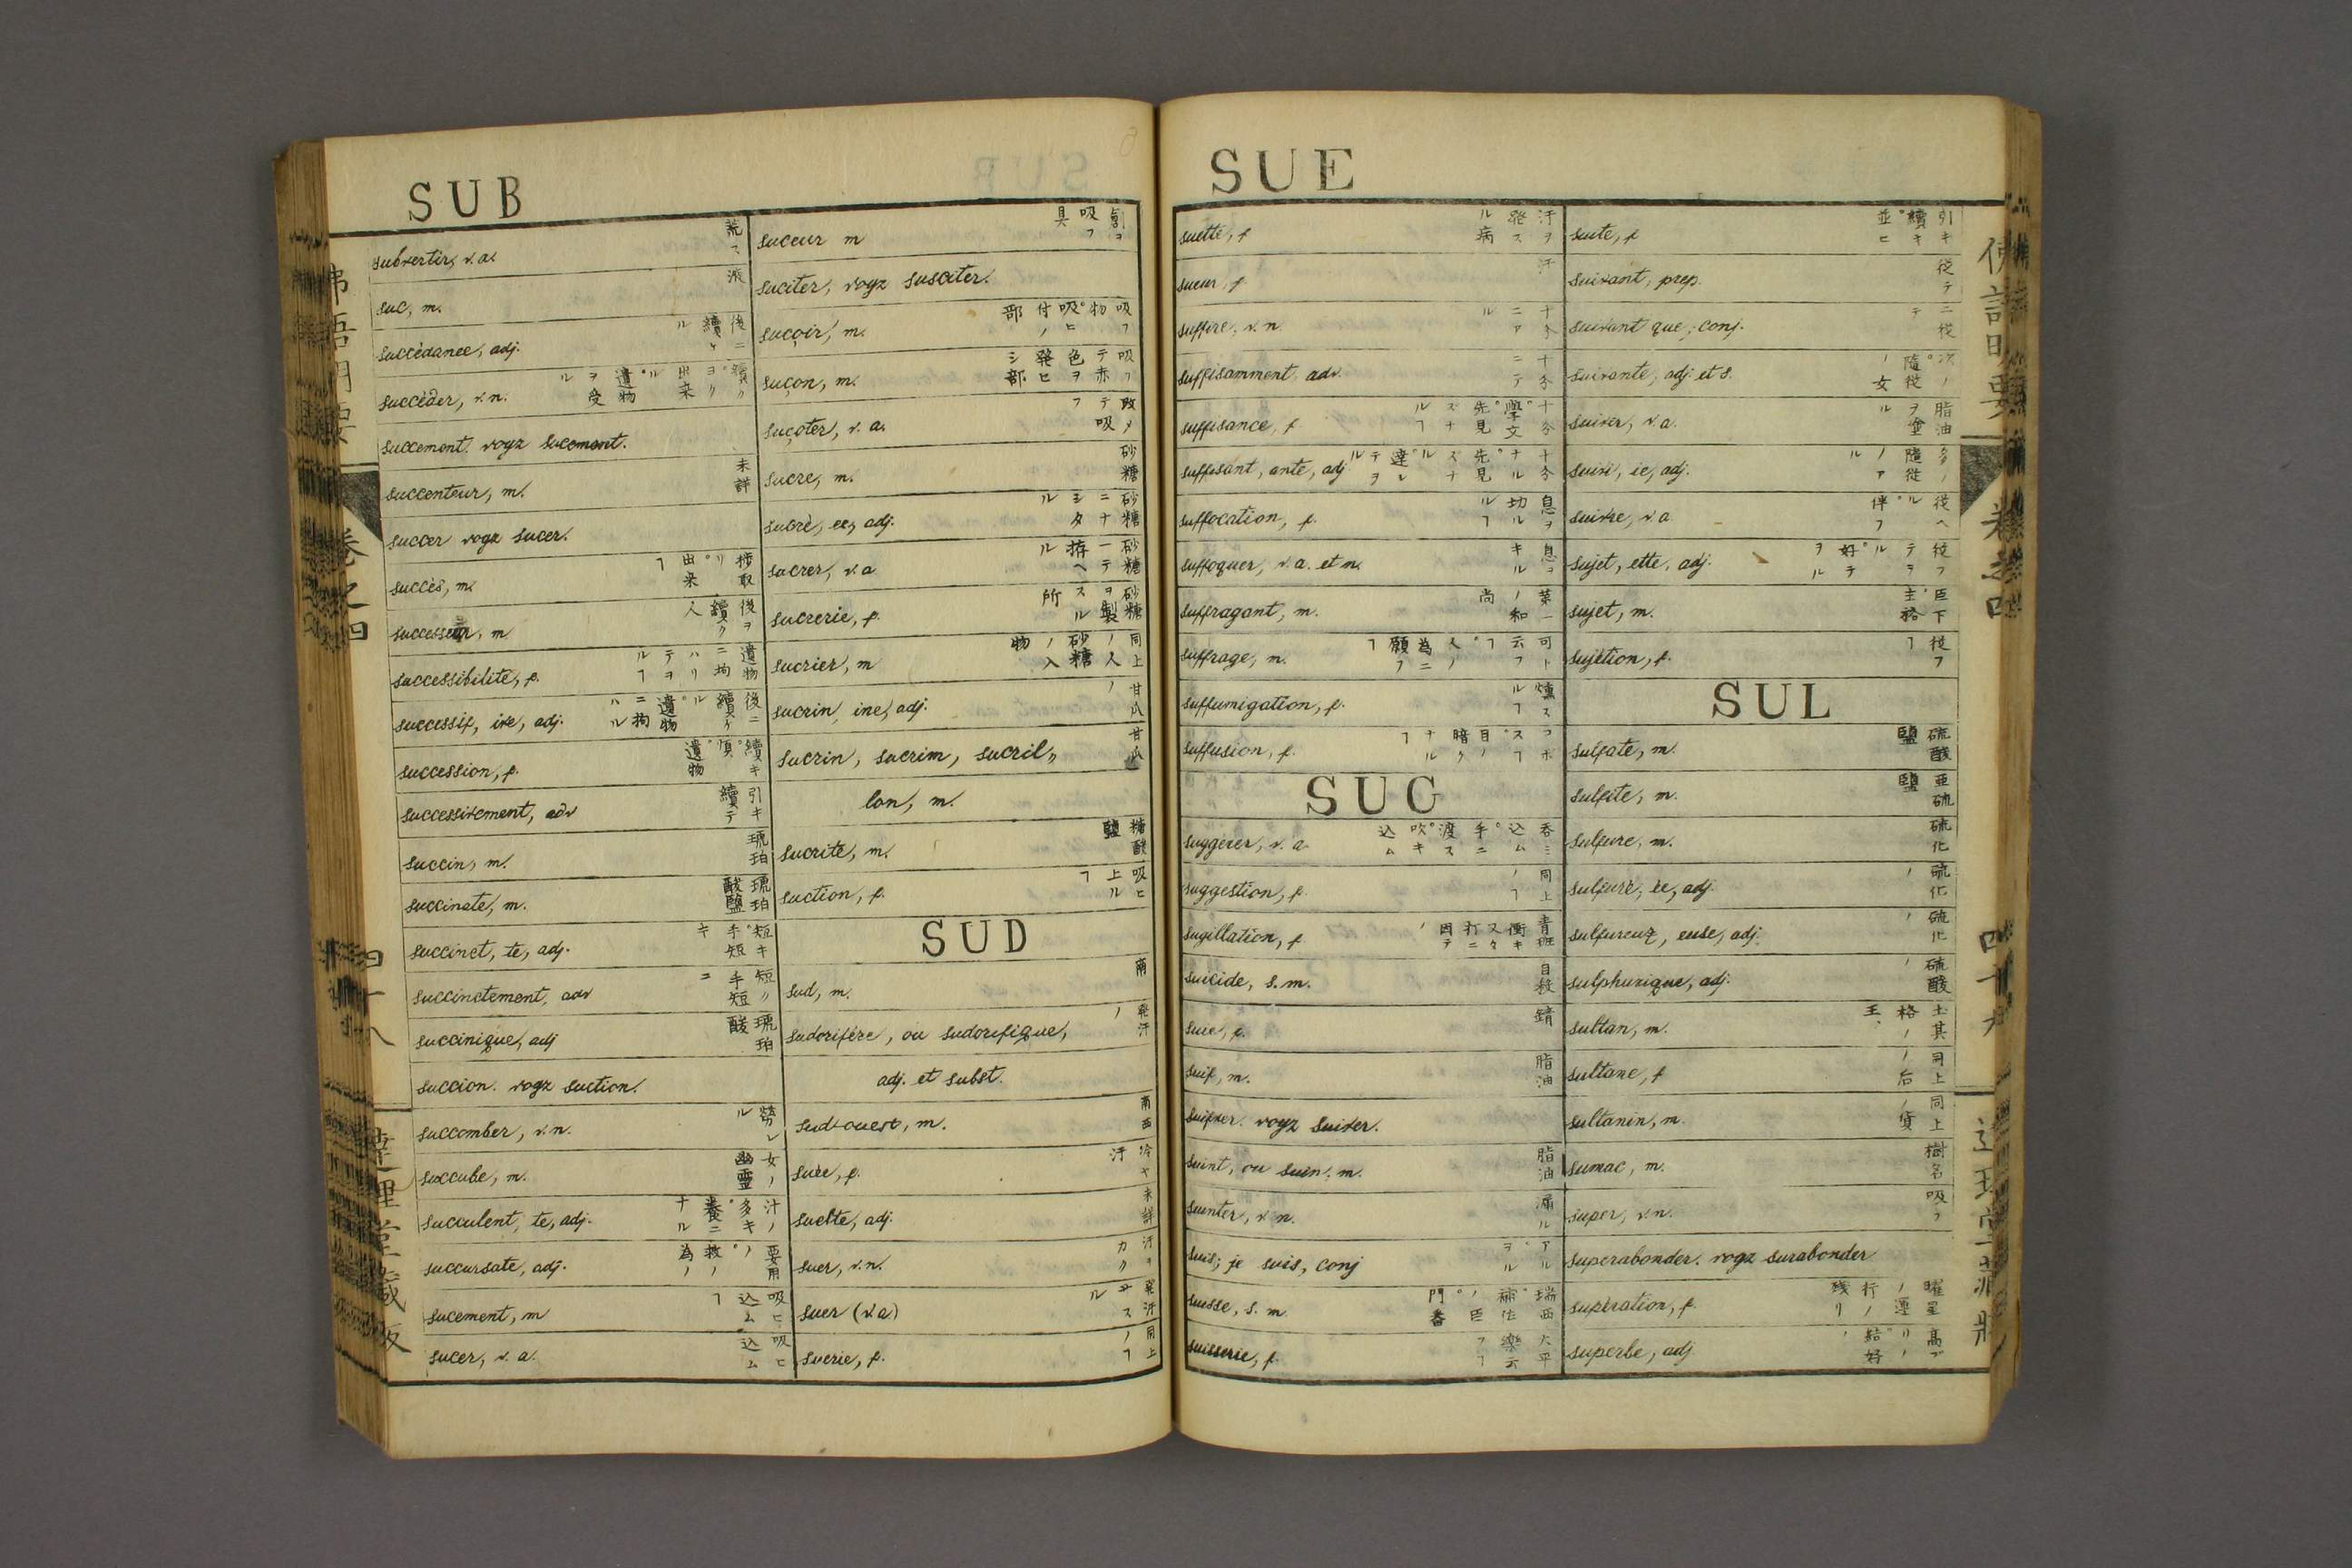 SUB
subvertir, v.a.
荒ス
suc, m.
液
succédanee, adj.
後ニ續ケル
succèder, v.n.
續ク。ヨク出来ル。遺物ヲ受ル
succement. vogz sucement.
succenteur, m.
未詳
succer vogz sucer.
succès, m.
捗取リ。出来ヿ
successeur, m
後ヲ續ク人
successibilite, f.
遺物ニ拘ハリテヲルヿ
successif, ive, adj.
後ニ續ケル。遺物ニ拘ハル
succession, f.
續キ。順。遺物
successivement, adv
引キ續テ
succin, m.
琥珀
succinate, m.
琥珀酸鹽
succinct, te, adj.
短キ。手短キ
succinctement, adv
短〃手短ニ
succinique, adj
琥珀酸
succion. vogz suction.
succomber, v.n.
勞レル
succube, m.
女ノ幽靈
succulent, te, adj.
汁ノ多キ。養ニナル
succursate, adj.
要用ノ。救ノ為ノ
sucement, m
吸ヒ込ムヿ
sucer, v.a.
吸ヒ込ム
suceur m
吸フ具
suciter, vogz susciter.
suçoir, m.
吸フ物。吸ヒ付ノ部
suçon, m.
吸フテ赤色ヲ発ヒシ部
suçoter, v.a.
テ吸フ
sucre, m.
砂糖
sucré, ee, adj.
砂糖ニナシタル
sucrer, v.a
砂糖ニテ拵ヘル
sucrerie, f.
砂糖ヲ製スル所
sucrier, m
同上ノ人砂糖ノ入物
sucrin, ine, adj.
甘瓜ノ
sucrin, sucrim, sucril〃
lon, m.
甘瓜
sucrite, m.
糖酸鹽
suction, f.
吸ヒ上ルヿ
SUD
sud, m.
南
sudorifére, ou sudorifique,
adj. et subst.
発汗ノ
sud-ouest, m.
南西
suée, f.
冷ヤ汗
suelte, adj.
未詳
suer, v.n.
汗ヲカク
suer (v.a)
発汗スル
suerie, f.
同上ノヿ
SUE
suette, f
汗ヲ発スル病
sueur, f.
汗
suffire, v.n.
十分ニアル
suffisamment, adv.
十分ニテ
suffisance, f
十分。學文。先見ナヿ
suffisant, ante, adj
suffocation, f.
息ヲ切ルヿ
suffoquer, v.a. et n.
息ヲキル
suffragant, m.
第一ノ和尚
suffrage, m.
可ト云フヿ。人ノ為ニ願フヿ
suffumigation, f.
燻スルヿ
suffusion, f.
SUG
suggérer, v.a.
呑ミ込ム。手ニ渡ス。吹キ込ム
suggestion, f.
同上ノヿ
sugillation, f
suicide, s.m.
自殺
suie, f.
suif, m.
脂油
suifver. vogz suiver.
suint, ou suin, m.
脂油
suinter, v.n.
漏ル
suis; je suis, conj
アル。ヲル
suisse, s.m.
瑞西ノ。補佐臣。門番
suisserie, f.
suite, f
引キ續キ。並ヒ
suivant, prep.
從テ
suivant que, conj.
ニ從テ
suivante, adj. et s.
次ノ。隨從ノ女
suiver, v.a.
脂油ヲ塗ル
suivi, ie, adj.
多ノ隨從ノアル
suivre, v.a
從ヘル。伴フ
sujet, ette, adj.
從フテヲル。好テヲル
sujet, m.
臣下。主
sujétion, f.
從フヿ
SUL
sulfate, m.
硫酸鹽
sulfite, m.
亜硫鹽
sulfure, m.
硫化
sulfuré, ée, adj.
硫化ノ
sulfureuz, euse, adj.
硫化ノ
sulphurique, adj.
硫酸ノ
sultan, m.
土其格ノ王
sultane, f
同上ノ后
sultanin, m.
同上ノ貨
sumac, m.
樹名
super, v.n.
吸フ
superabonder. vogz surabonder
supération, f.
曜星ノ運行ノ殘リ
superbe, adj
佛語明要 卷之四 四十八 達理堂藏版
佛語明要 卷之四 四十九 達理堂藏版